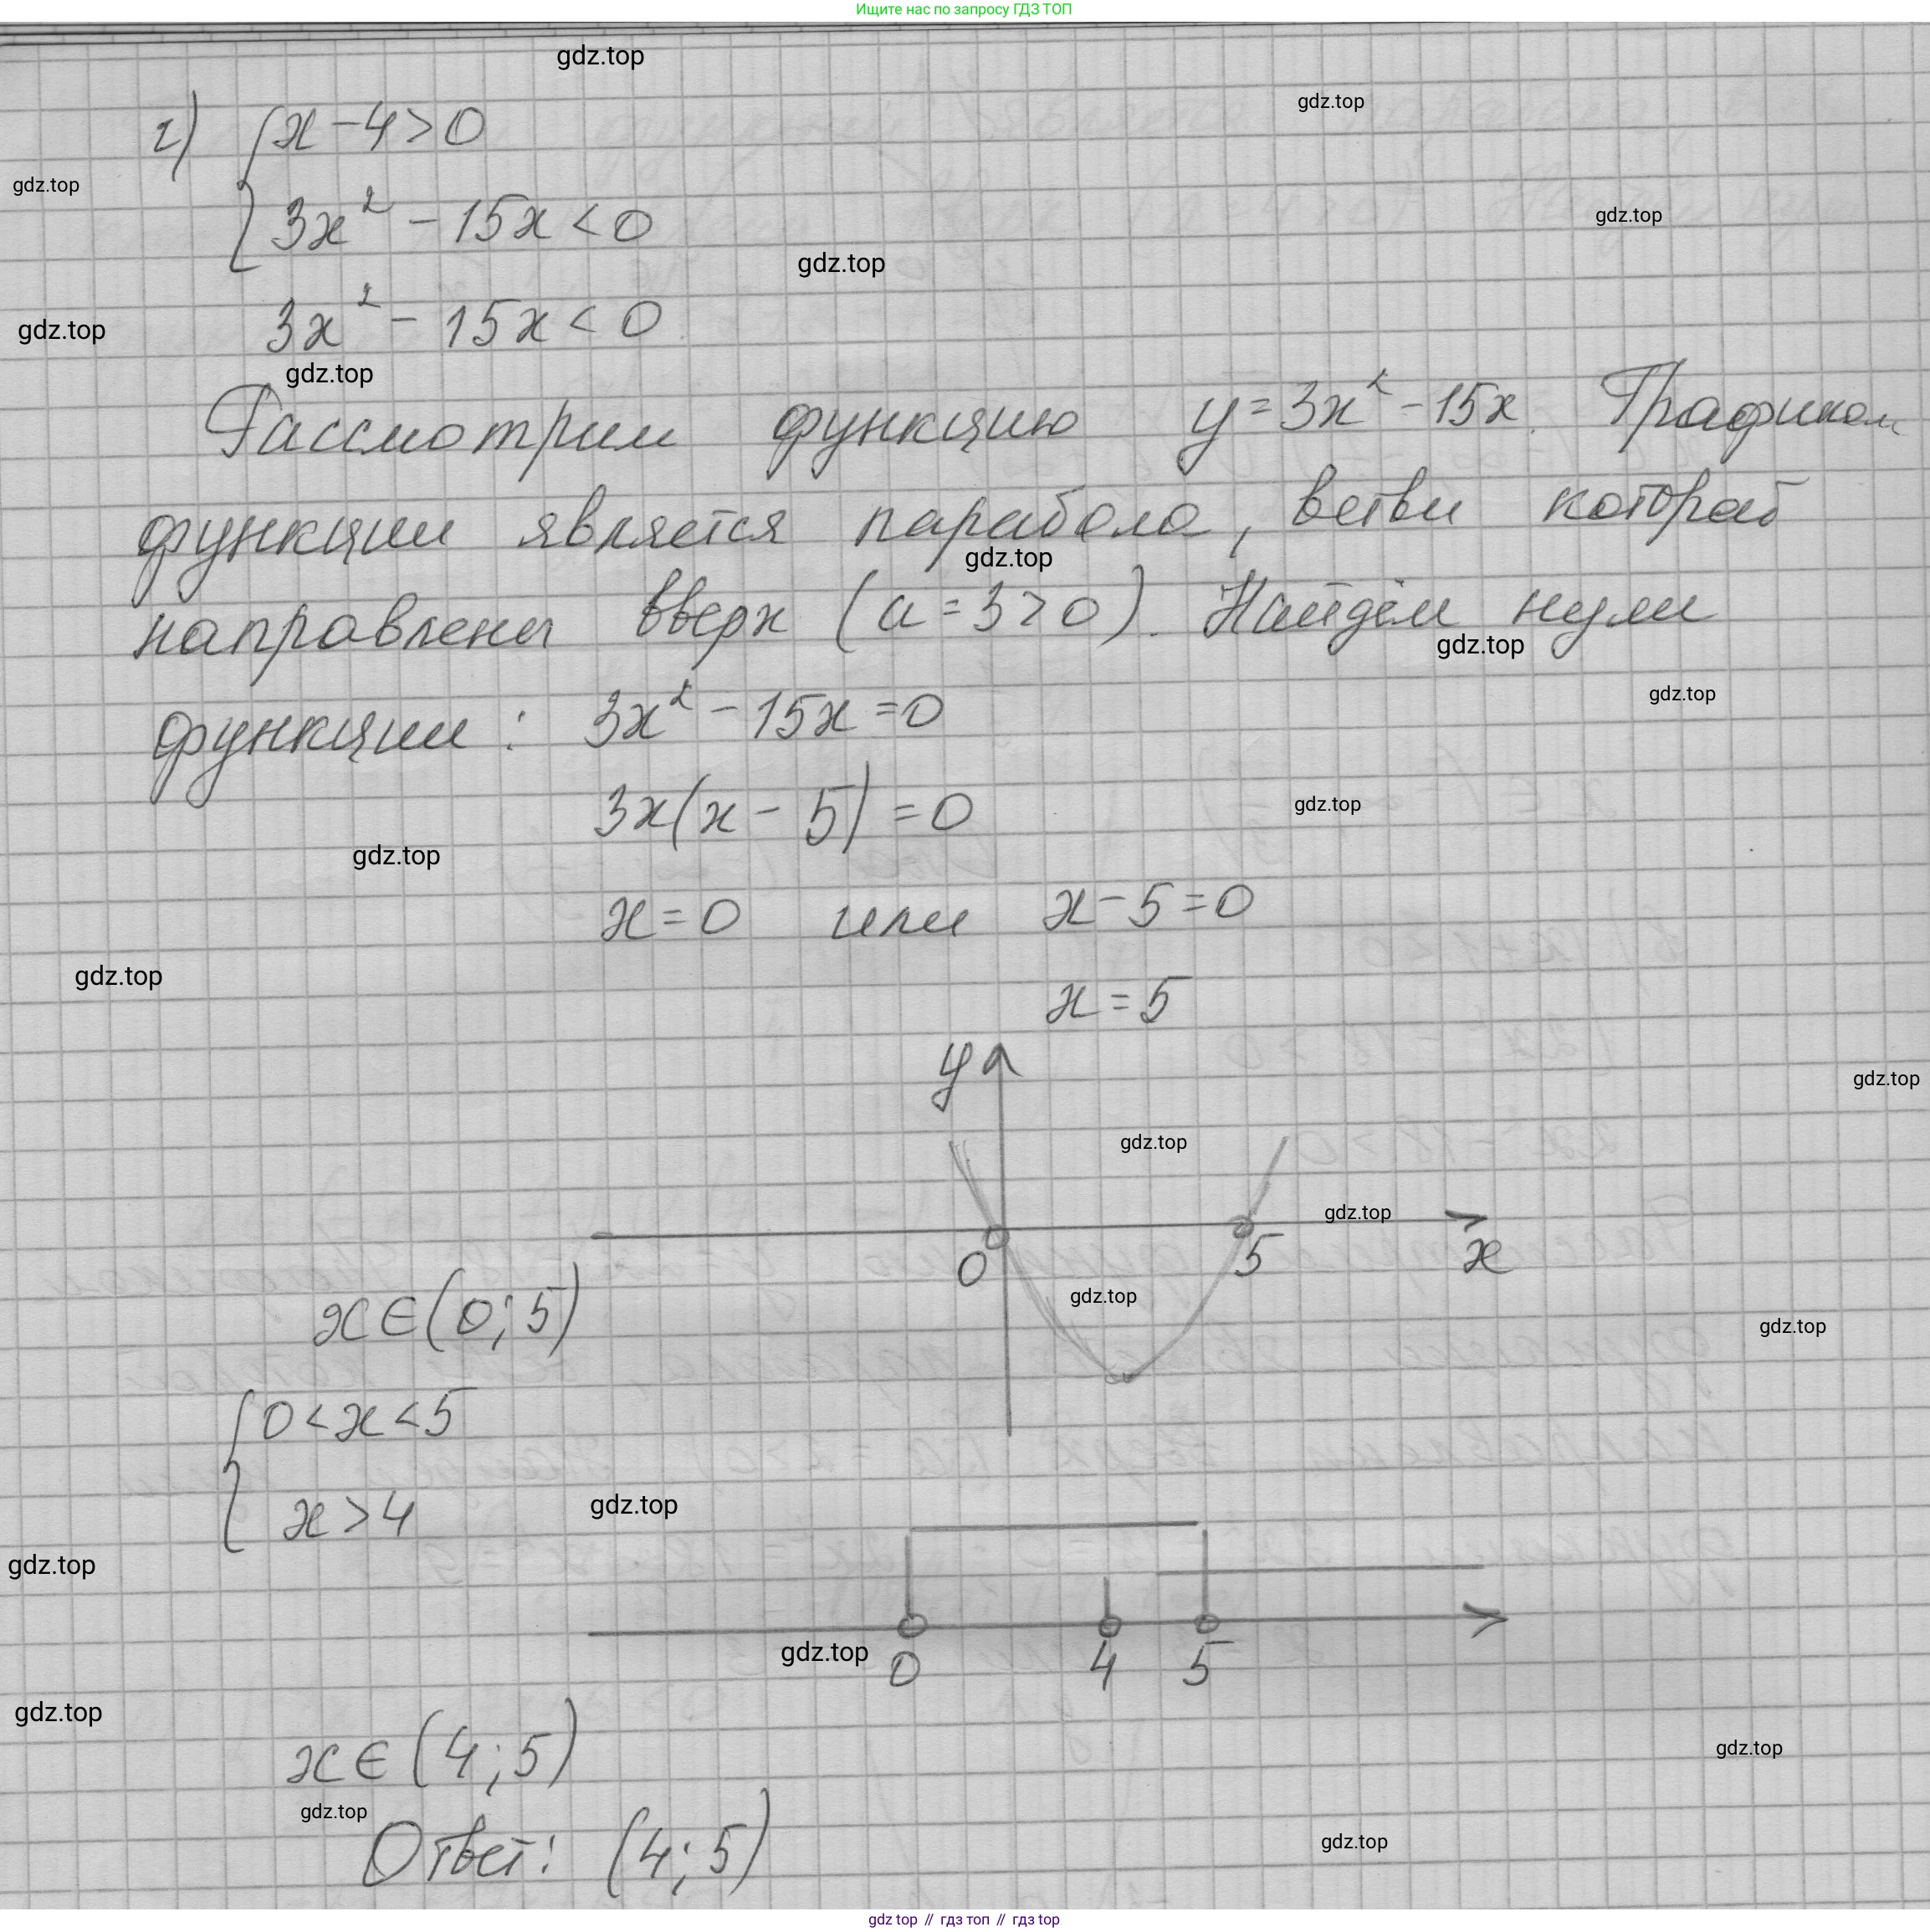 Ищите нас по запросу ГДЗ ТОП
gdz.top
gdz.top
г) { x - 4 > 0
gdz.top
3x² - 15x < 0
gdz.top
gdz.top
3x² - 15x < 0
gdz.top
gdz.top
Рассмотрим функцию y = 3x² - 15x. Графиком
функции является парабола, ветви которой
gdz.top
направлены вверх (a = 3 > 0). Найдём нули
gdz.top
gdz.top
функции: 3x² - 15x = 0
3x(x - 5) = 0
gdz.top
gdz.top
x = 0 или x - 5 = 0
gdz.top
x = 5
y
gdz.top
gdz.top
gdz.top
0 5 x
gdz.top
x ∈ (0; 5)
gdz.top
{ 0 < x < 5
x > 4
gdz.top
gdz.top
gdz.top
0 4 5
gdz.top
x ∈ (4; 5)
gdz.top
gdz.top
Ответ: (4; 5)
gdz.top
gdz top // гдз топ // гдз top